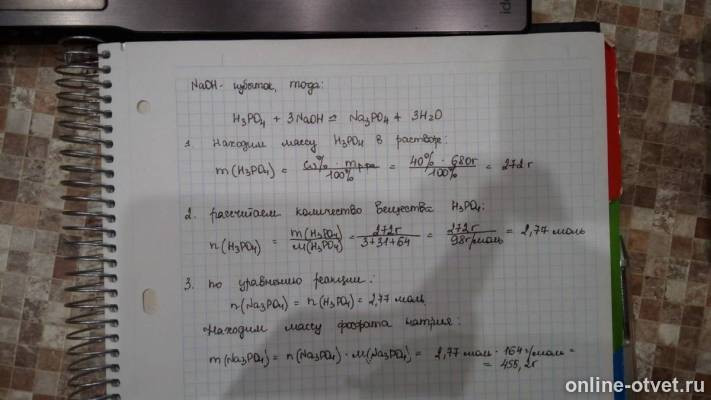 NaOH - избыток, тогда:
H₃PO₄ + 3NaOH = Na₃PO₄ + 3H₂O
1. Находим массу H₃PO₄ в растворе:
m(H₃PO₄) = ω% · mр-ра / 100% = 40% · 680г / 100% = 272 г
2. рассчитаем количество вещества H₃PO₄:
n(H₃PO₄) = m(H₃PO₄) / M(H₃PO₄) = 272г / 3+31+64 = 272г / 98г/моль = 2,77 моль
3. по уравнению реакции:
n(Na₃PO₄) = n(H₃PO₄) = 2,77 моль
Находим массу фосфата натрия:
m(Na₃PO₄) = n(Na₃PO₄) · M(Na₃PO₄) = 2,77 моль · 164 г/моль =
= 455,2г
online-otvet.ru